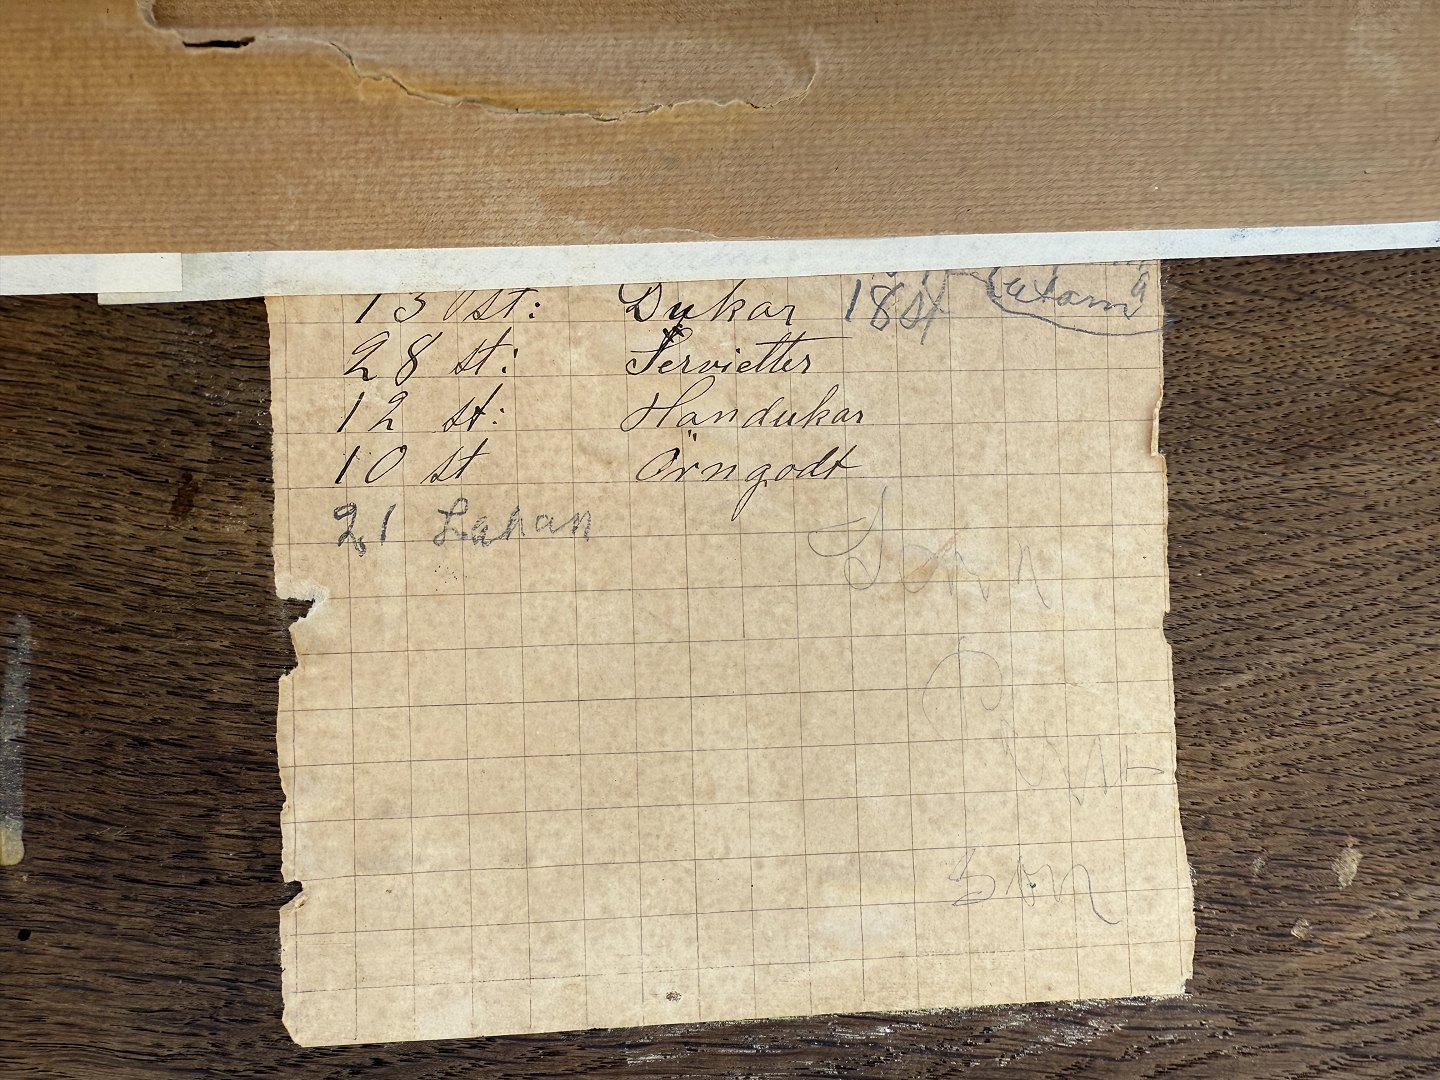 13 st: Dukar 18 st
28 st: Servietter
12 st: Handukar
10 st Örngodt
21 Lakan